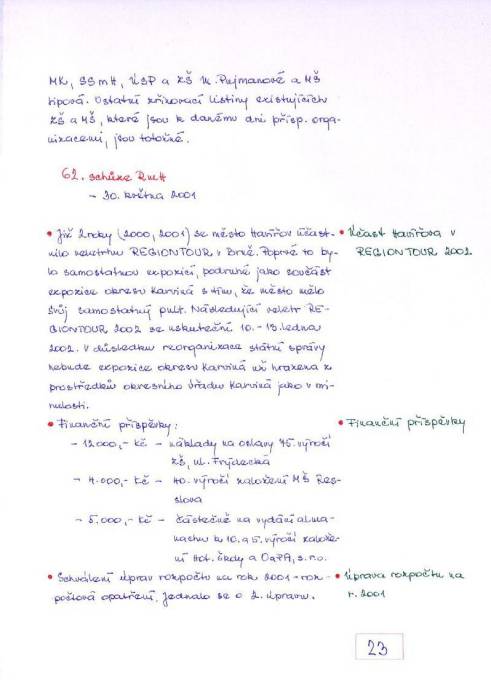 MK, SSmH, ÚSP a ZŠ M. Pujmanové a MŠ
Lípová. Ostatní zřizovací listiny existujících
ZŠ a MŠ, které jsou k danému dni přísp. orga-
nizacemi, jsou totožné.
62. schůze RmH
- 30. května 2001
• Již 2 roky (2000, 2001) se město Havířov účast-
nilo veletrhu REGIONTOUR v Brně. Poprvé to by-
lo samostatnou expozicí, podruhé jako součást
expozice okresu Karviná s tím, že město mělo
svůj samostatný pult. Následující veletr RE-
GIONTOUR 2002 se uskuteční 10.-13. ledna
2002. V důsledku reorganizace státní správy
nebude expozice okresu Karviná už hrazena z
prostředků okresního úřadu Karviná jako v mi-
nulosti.
• Účast Havířova v
REGIONTOUR 2002.
• Finanční příspěvky:
- 12000,- Kč - náklady na oslavy 45. výročí
ZŠ, ul. Frýdecká
- 4.000,- Kč - 40. výročí založení MŠ Res-
slova
- 5.000,- Kč - částečně na vydání alma-
nachu k 10. a 5. výročí založe-
ní Hot. školy a OaPA, s.r.o.
• Finanční příspěvky
• Schválení úprav rozpočtu na rok 2001 - roz-
počtová opatření. Jednalo se o 2. úpravu.
• Úprava rozpočtu na
r. 2001
23